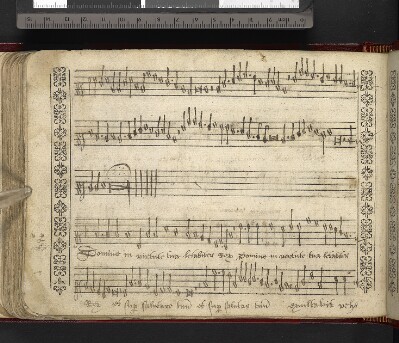 Domine in virtute tua letabitur Rex Domine in virtute tua letabitur
Rex et sup salutare tuu et sup salutare tuu exultabit vehe